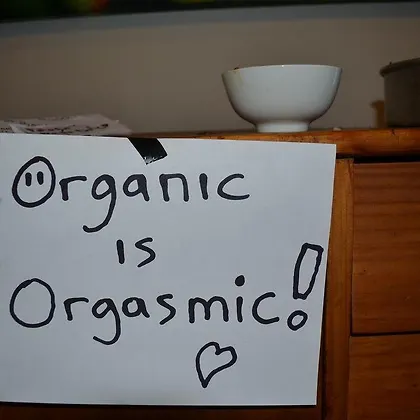 Organic
is
Orgasmic!